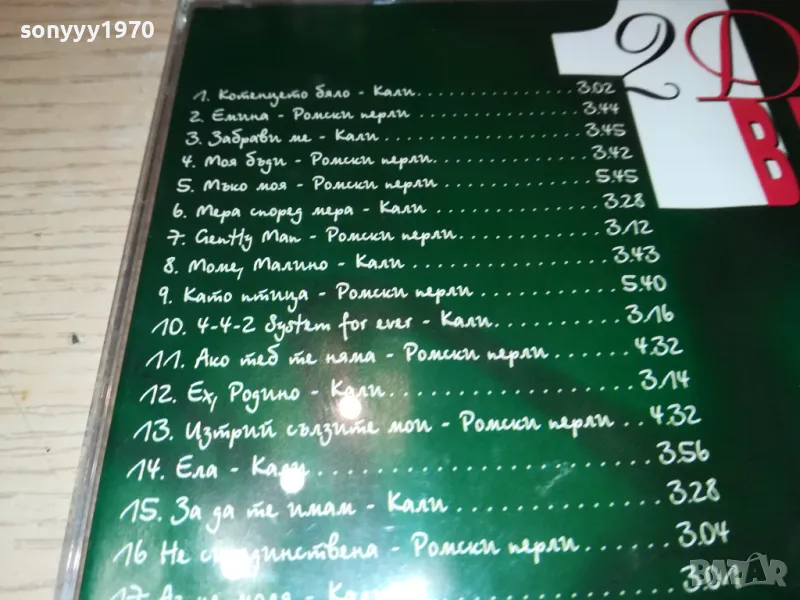 sonyyy1970
2 D
1
B
1. Котенцето бяло - Кали 3.02
2. Емина - Ромски перли 3.44
3. Забрави ме - Кали 3.45
4. Моя бъди - Ромски перли 3.42
5. Мъко моя - Ромски перли 5.45
6. Мера според мера - Кали 3.28
7. Gently Man - Ромски перли 3.12
8. Моме, Малино - Кали 3.43
9. Като птица - Ромски перли 5.40
10. 4-4-2 System for ever - Кали 3.16
11. Ако теб те няма - Ромски перли 4.32
12. Ех, Родино - Кали 3.14
13. Изтрий сълзите мои - Ромски перли 4.32
14. Ела - Кали 3.56
15. За да те имам - Кали 3.28
16 Не си единствена - Ромски перли 3.04
17. Аз не моля - Кали 3.01
BAZAR